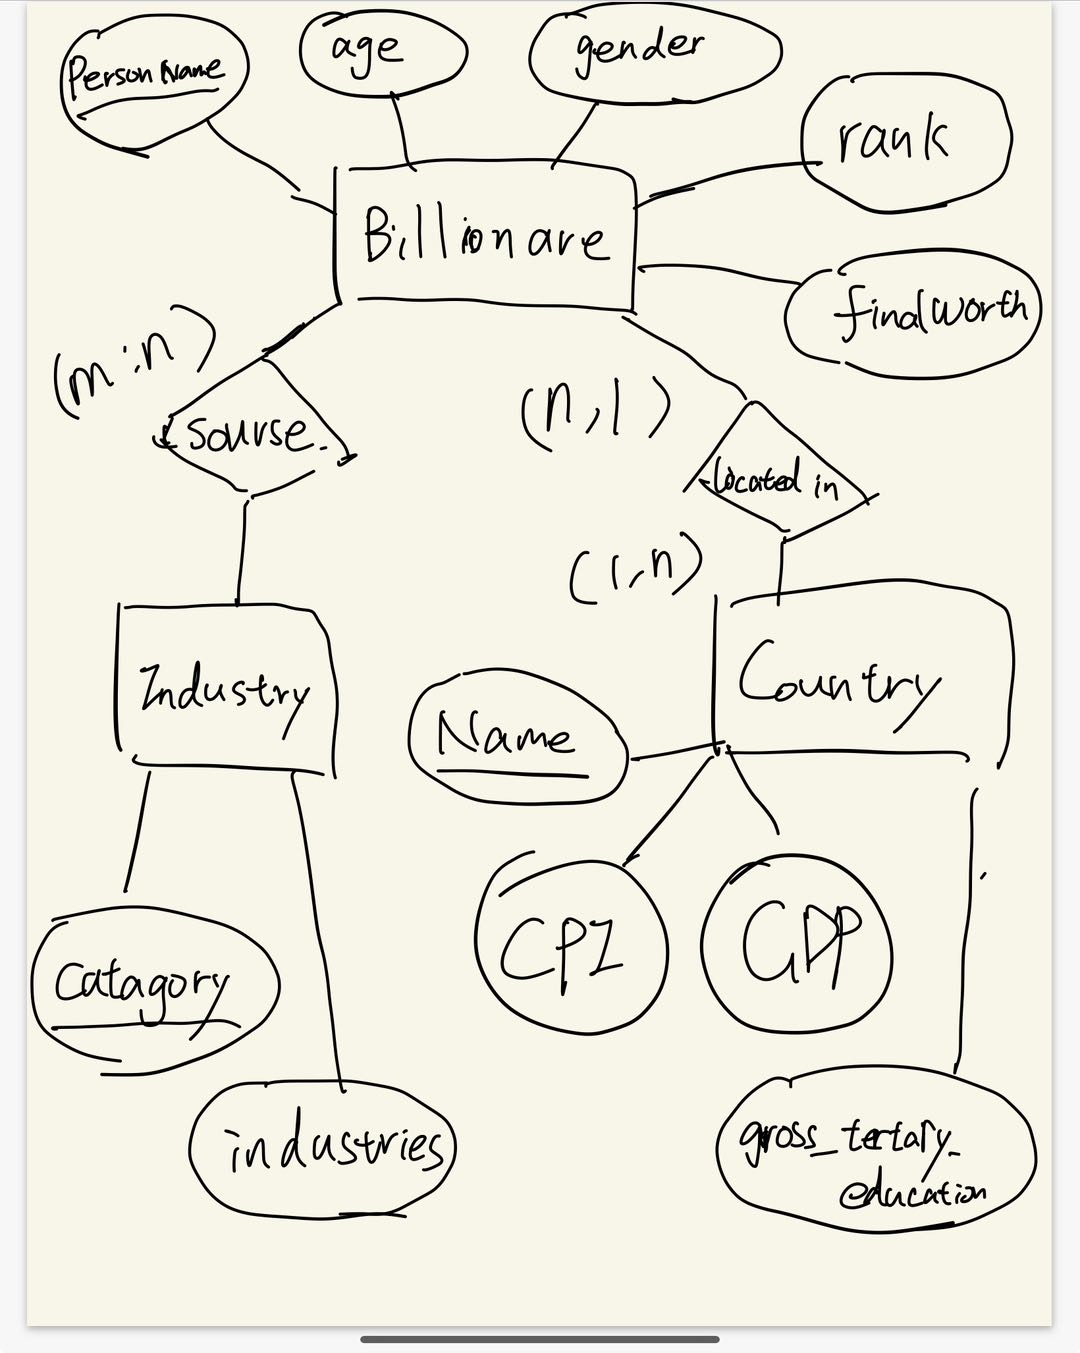 PersonName
age
gender
rank
Billionare
finalworth
(m:n)
(n,1)
sourse.
located in
(1,n)
Industry
Country
Name
CPI
GDP
Catagory
industries
gross_tertary_
education